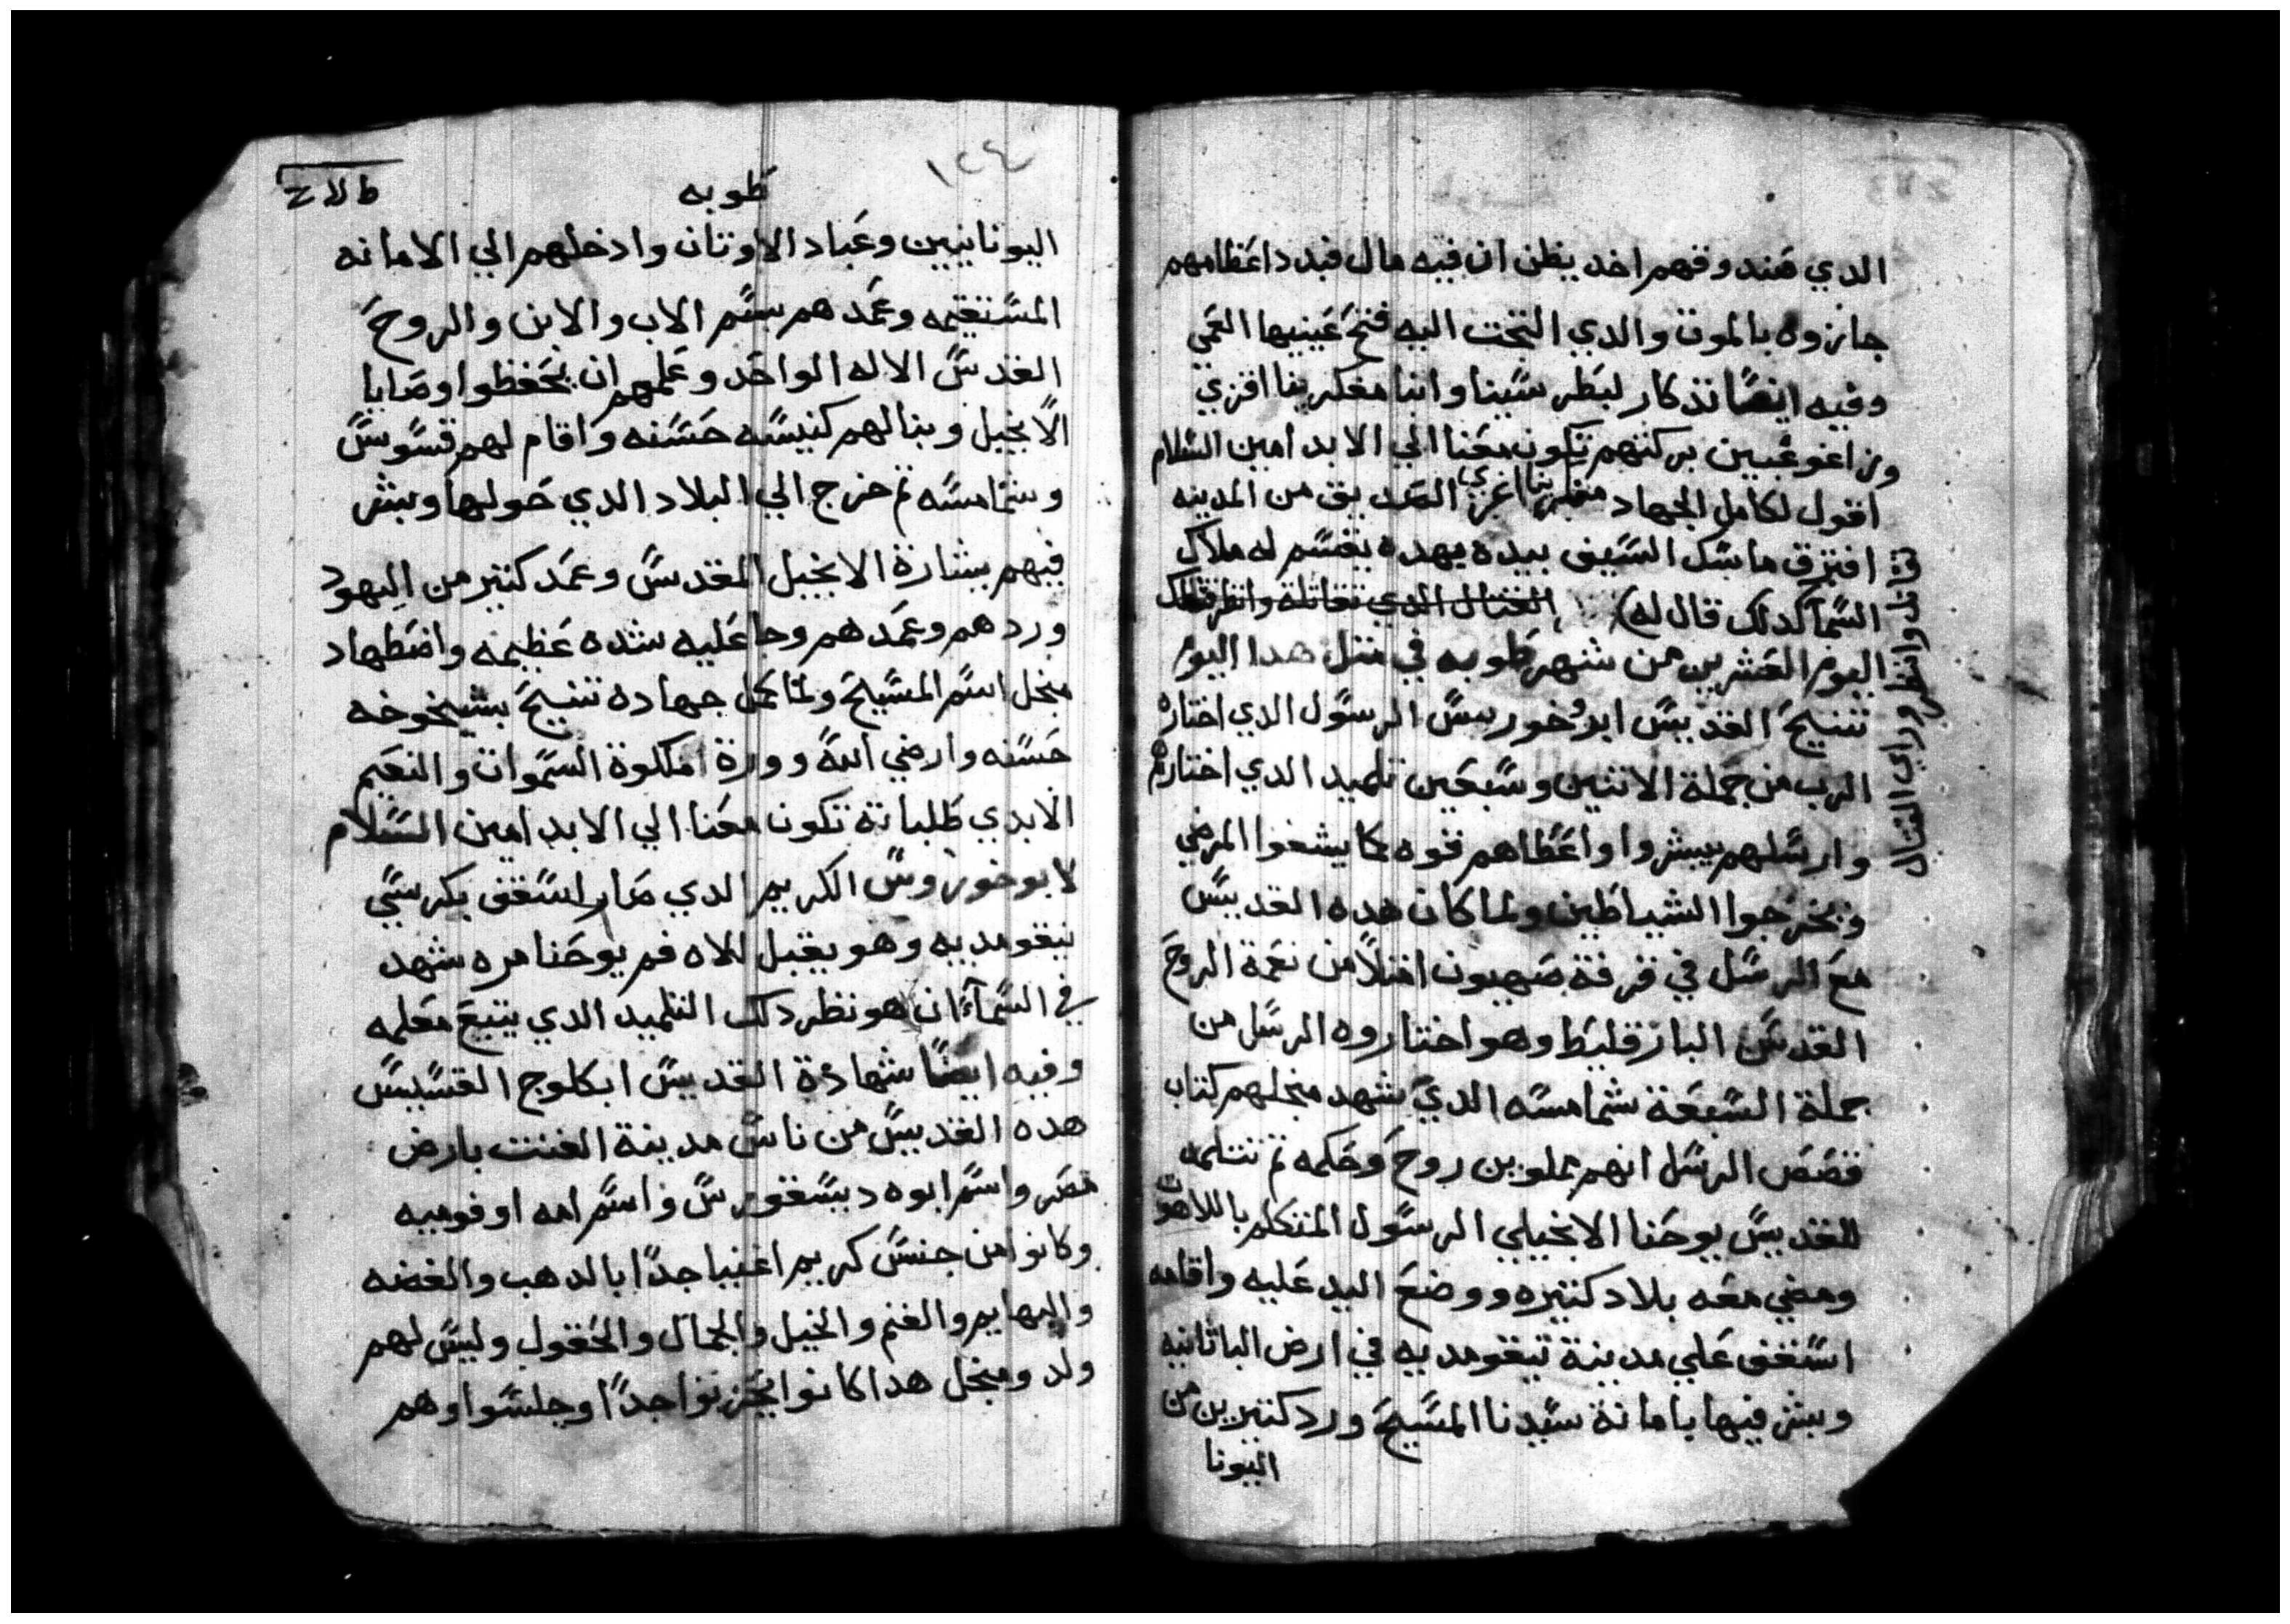 الدي صندوقهم اخد يظن ان فيه مال فبدد اعظامهم
جازوه بالموت والدي التخت اليه فتح عينيها العمي
وفيه ايضًا تدكار لبطر سينا واننا مفكرينا افزي
وزراغوغيين بركتهم تكون معنا الي الابد امين السلام
اقول لكامل الجهاد مفكرينا اغزي الصديق من المدينه
افترق ماسك السيف بيده يهده يقسم له ملاك
السما كدلك قال له) القتال الدي تقاتله وانظر
قاتل وانظر وراي القتال
اليوم العشرين من شهر طوبه في متل هدا اليوم
تنيح القديس ابروخورس الرسول الدي اختاره
الرب من جملة الاتنين وسبعين تلميد الدي اختارهم
وارسلهم يبشروا واعطاهم قوه بما يشفوا المرضي
ويخرجوا الشياطين ولما كان هده القديس
مع الرسل في غرفة صهيون امتلا من نعمة الروح
القدس البارقليط وهو اختاروه الرسل من
جملة السبعة شمامسه الدي شهد منجلهم كتاب
قصص الرسل انهم مملوين روح وحكمه تم تتلمه
للقديس يوحنا الانجيلي الرسول المتكلم باللاهوت
ومضي معه بلاد كتيره ووضع اليد عليه واقامه
اسقف علي مدينة نيقومديه في ارض الباتانيه
وبشر فيها بامانة سيدنا المسيح ورد كتيرين من
اليونا
١٢٤
طوبه
اليونانيين وعباد الاوتان وادخلهم الي الامانه
المستقيمه وعمدهم بسم الاب والابن والروح
القدس الاله الواحد وعلمهم ان يحفظوا وصايا
الانجيل وبنا لهم كنيسه حسنه واقام لهم قسوس
وشمامسه تم خرج الي البلاد الدي حولها وبشر
فيهم ببشارة الانجيل المقدس وعمد كتير من اليهود
وردهم وعمدهم وجا عليه شده عظيمه واضطهاد
منجل اسم المسيح ولما كمل جهاده تنيح بشيخوخه
حسنه وارضي الله وورة املكوة السموات والنعيم
الابدي طلباته تكون معنا الي الابد امين السلام
لابوخوروس الكريم الدي صار اسقف بكرسي
نيقومديه وهو يقبل للاه فم يوحنا مره شهد
في السما ان هو نظر دلك التلميد الدي يتبع معلمه
وفيه ايضًا شهادة القديس ابكلوج القسيس
هده القديس من ناس مدينة الفنت بارض
مصر واسم ابوه ديسقورس واسم امه اوفوميه
وكانوا من جنس كريم اغنيا جدًا بالدهب والفضه
والبهايم والغنم والخيل والجمال والحقول وليس لهم
ولد ومنجل هدا كانوا يحزنوا جدًا وجلسوا وهم